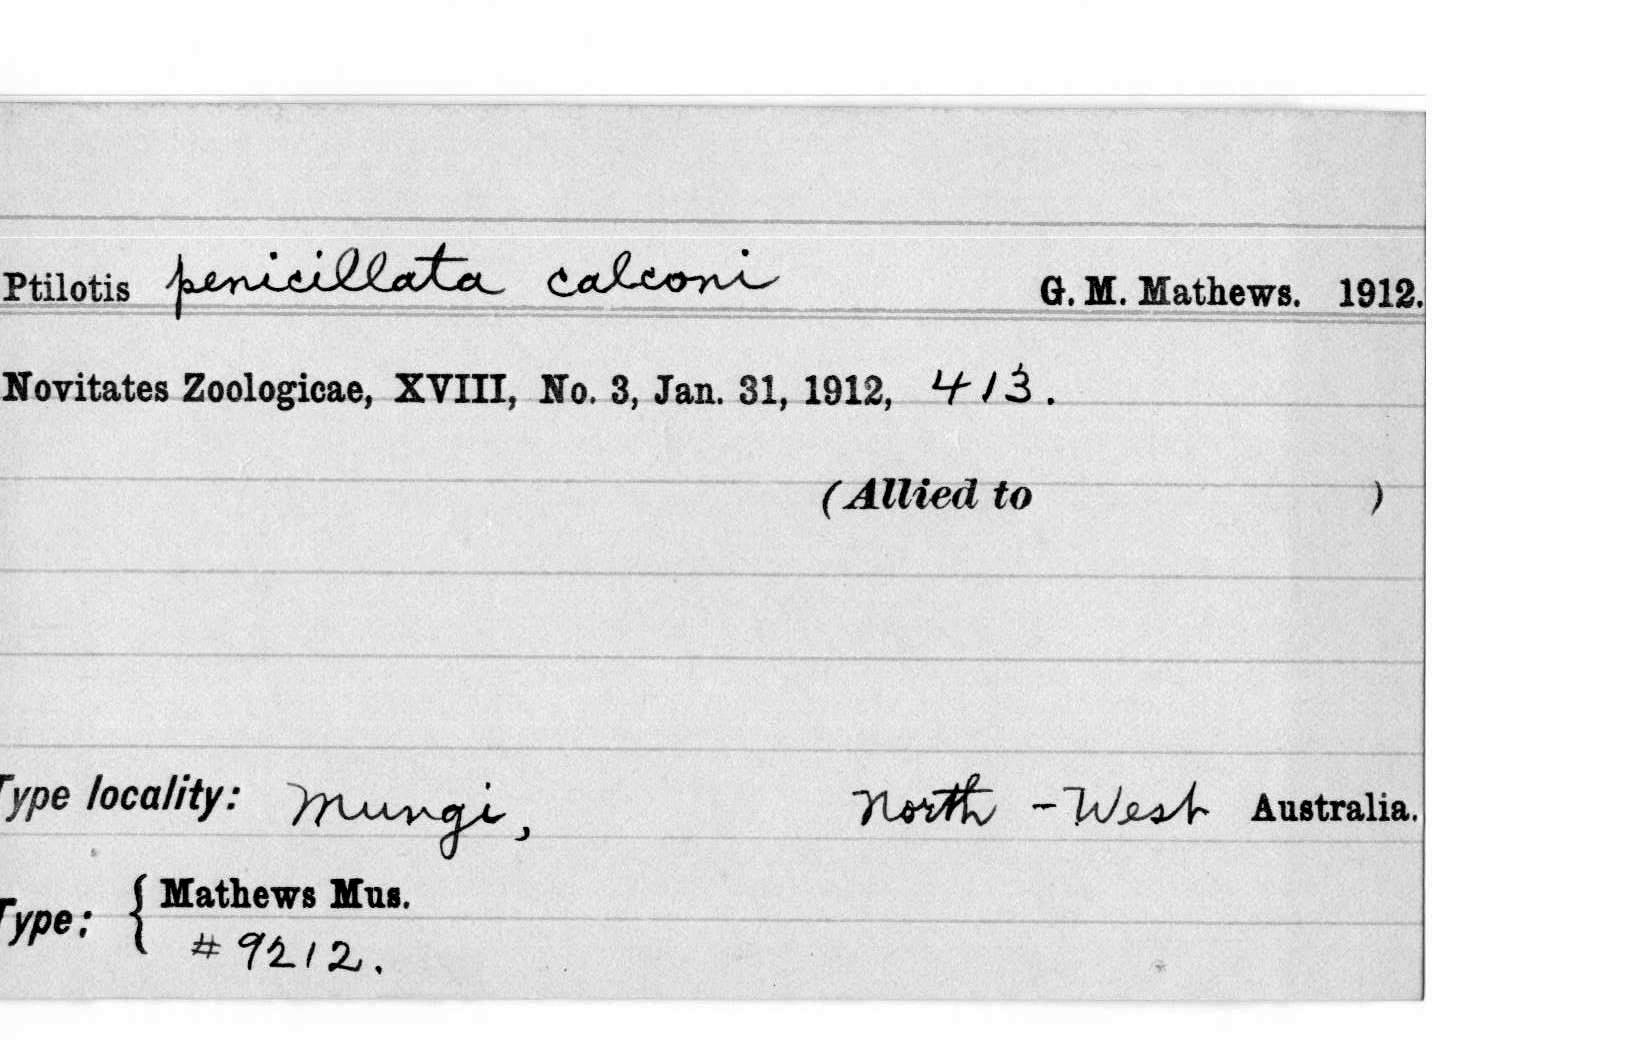 Ptilotis penicillata calconi G. M. Mathews. 1912.
Novitates Zoologicae, XVIII, No. 3, Jan. 31, 1912, 413.
(Allied to )
Type locality: Mungi, North-West Australia.
Type: { Mathews Mus.
# 9212.